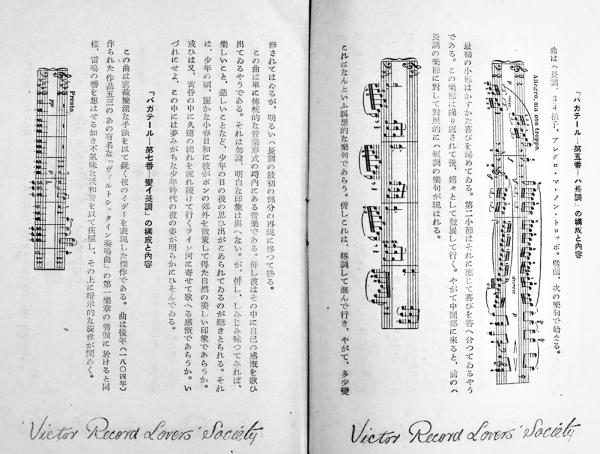 「バガテール―第五番―ハ長調」の構成と內容
曲はハ長調、3/4拍子、アレグロ・マ・ノン・トロッポ。劈頭、次の樂句で始まる。
Allegro ma non troppo
最初の小節はかすかな喜びを秘めてゐる。第二小節はそれに應じて喜びを答へ合つてゐるやう
である。この樂節は繰り返されて後、嬉々として發展して行く。やがて中間部に來ると、前のハ
長調の樂節に對して對照的にハ短調の樂句が現はれる。
これはなんといふ瞑想的な樂句であらう。併しこれは、轉調して進んで行き、やがて、多少變
Victor Record Lovers' Society
形されてはゐるが、明るいハ長調の最初の部分の再現に移つて終る。
この曲は單に傳統的な音樂形式の埒內にある音樂である。併し彼はその中に自己の感慨を歌ひ
出てゐるやうである。それは勿論、明白な印象は與へない。が、併し、しみじみ味つてみれば、
樂しいこと、悲しいことなど、少年の日の彼の思ひ出がこめられてゐるのが聽きとられる。それ
は、少年の頃、麗かな小春日和に彼がボンの郊外を散策して得た自然の美しい印象であらうか。
或ひは又、黃昏の中に久遠の流れを流れ續けて行くライン河に寄せて歌へる感慨であらうか。い
づれにせよ、この中には夢みがちな少年時代の彼の姿が明らかにひそんでゐる。
「バガテール―第七番―變イ長調」の構成と內容
この曲は直截簡潔な手法を以て鋭く彼のイデーを表現した傑作である。曲は後年(一八〇四年)
作られた作品五三のあの有名な「ヴァルトシュタイン奏鳴曲」の第一樂章の劈頭に於けると同
樣、雷鳴の響を想はせる如き不氣味な低和音を以て疾驅し、その上に暗示的な旋律が閃めく。
Presto
Victor Record Lovers' Society